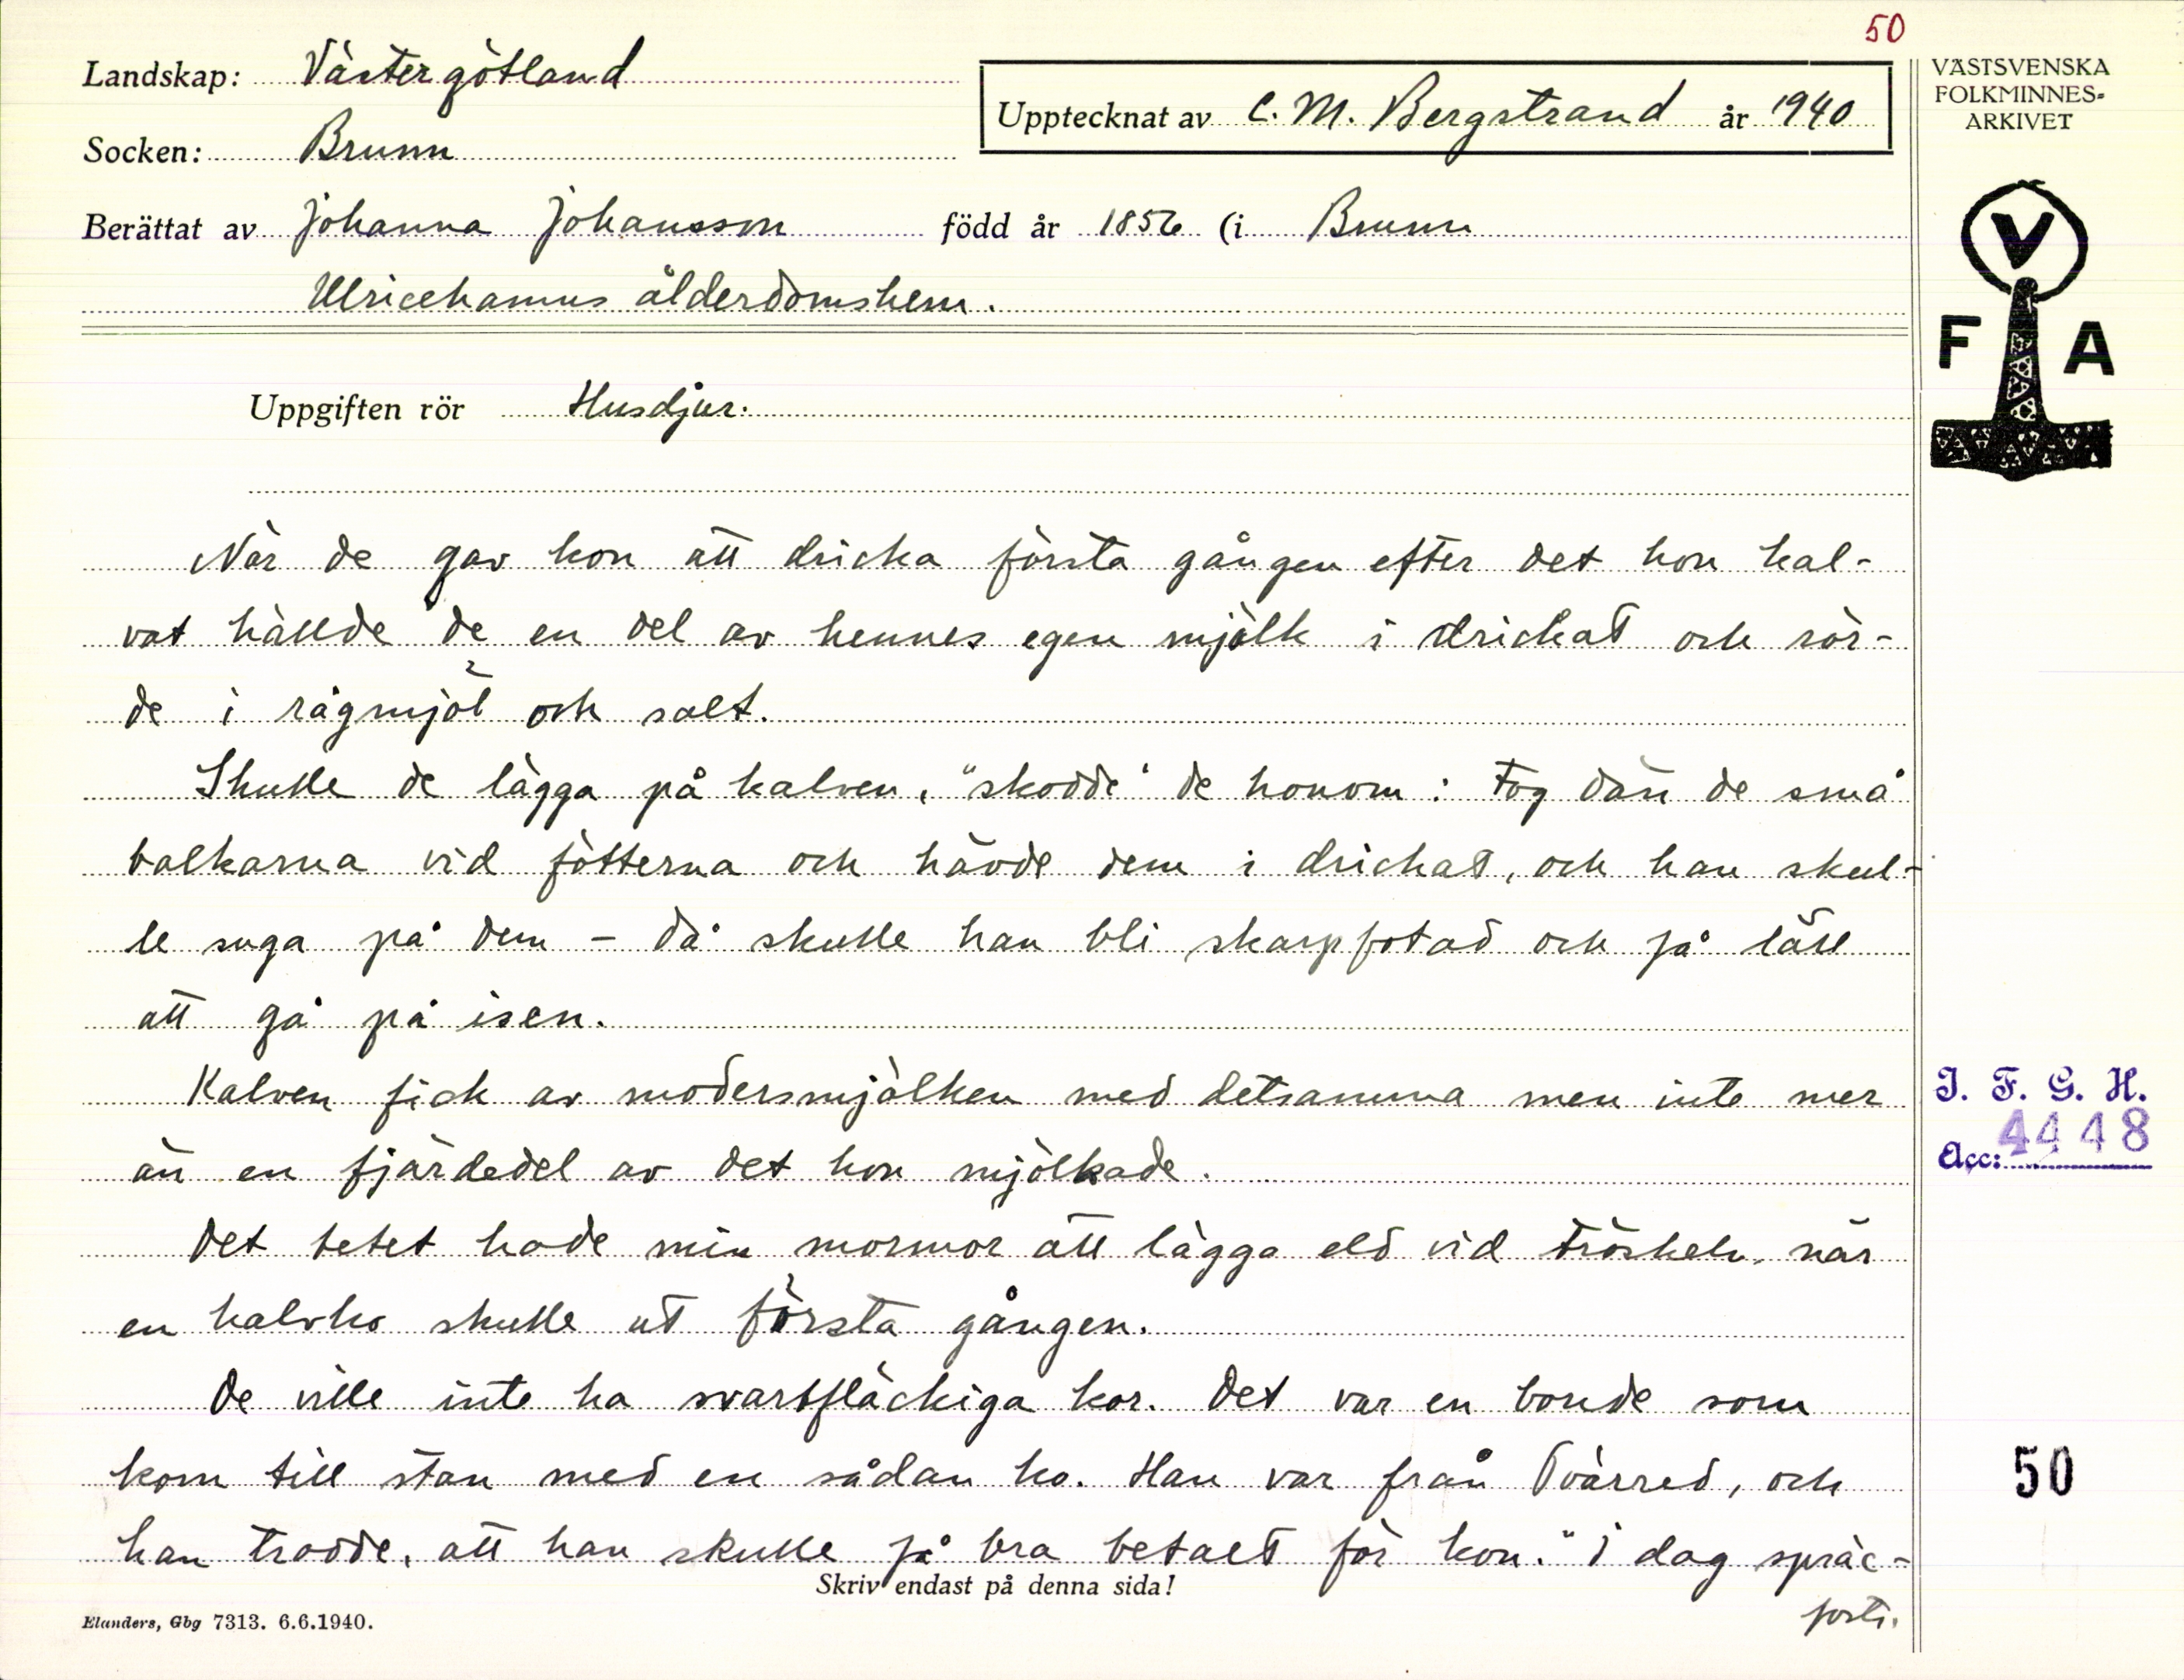 50
Landskap: Västergötland
Upptecknat av C. M. Bergstrand år 1940
VÄSTSVENSKA
FOLKMINNES-
ARKIVET
Socken: Brunn
Berättat av Johanna Johansson född år 1856 (i Brunn
Ulricehamns ålderdomshem.
V
F A
Uppgiften rör Husdjur.
När de gav kon att dricka första gången efter det hon kal-
vat hällde de en del av hennes egen mjölk i drickat och rör-
de i rågmjöl och salt.
Skulle de lägga på kalven, "skodde" de honom: Tog dän de små
balkarna vid fötterna och hävde dem i drickat, och han skul-
le suga på dem – då skulle han bli skarpfotad och få lätt
att gå på isen.
Kalven fick av modersmjölken med detsamma men inte mer
än en fjärdedel av det hon mjölkade.
Det betet hade min mormor att lägga eld vid tröskeln, när
en kalvko skulle ut första gången.
De ville inte ha svartfläckiga kor. Det var en bonde som
kom till stan med en sådan ko. Han var från Tvärred, och
han trodde, att han skulle få bra betalt för kon. "I dag späc-
forts.
I. F. G. H.
Acc: 4448
50
Skriv endast på denna sida!
Elanders, Gbg 7313. 6.6.1940.